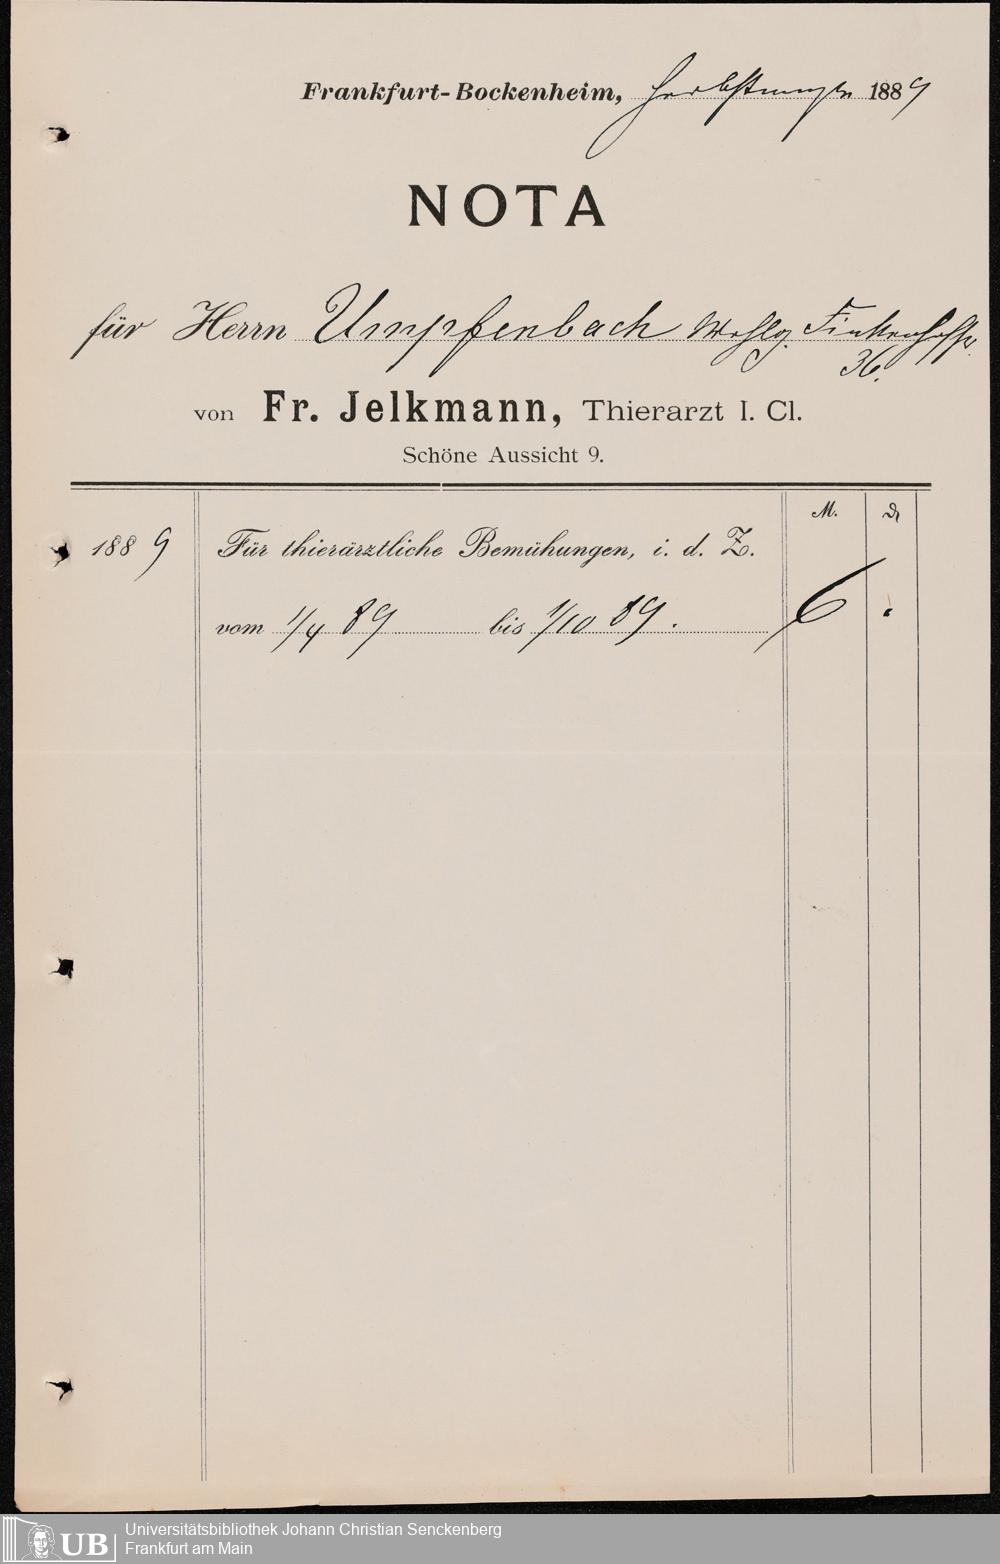 Frankfurt-Bockenheim, Herbstmesse 1889
NOTA
für Herrn Umpfenbach Wohlg.
36.
von Fr. Jelkmann, Thierarzt I. Cl.
Schöne Aussicht 9.
M. ₰
1889 Für thierärztliche Bemühungen, i. d. Z.
vom 1/4 89 bis 1/10 89. 6 .
UB Universitätsbibliothek Johann Christian Senckenberg
Frankfurt am Main